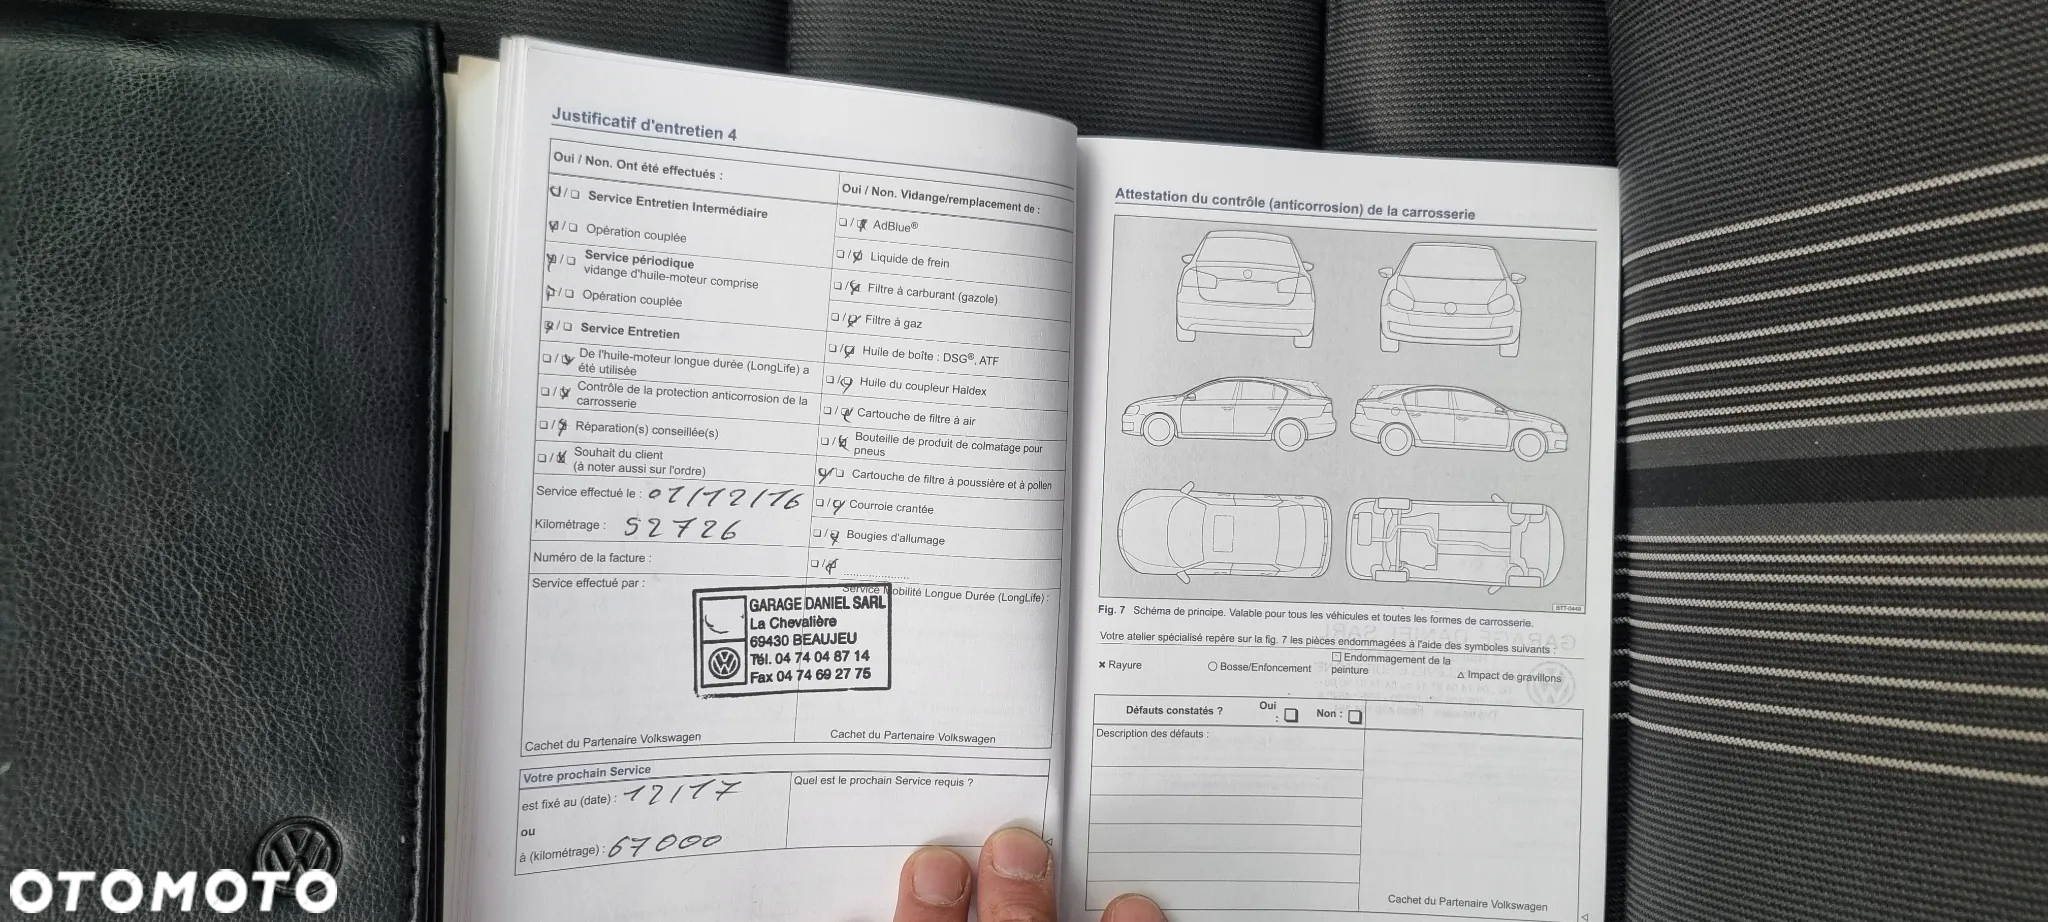 Justificatif d'entretien 4
Oui / Non. Ont été effectués :
Service Entretien Intermédiaire
Opération couplée
Service périodique
vidange d'huile-moteur comprise
Opération couplée
Service Entretien
De l'huile-moteur longue durée (LongLife) a
été utilisée
Contrôle de la protection anticorrosion de la
carrosserie
Réparation(s) conseillée(s)
Souhait du client
(à noter aussi sur l'ordre)
Service effectué le : 01/12/16
Kilométrage : 52726
Numéro de la facture :
Service effectué par :
Oui / Non. Vidange/remplacement de :
AdBlue®
Liquide de frein
Filtre à carburant (gazole)
Filtre à gaz
Huile de boîte : DSG®, ATF
Huile du coupleur Haldex
Cartouche de filtre à air
Bouteille de produit de colmatage pour
pneus
Cartouche de filtre à poussière et à pollen
Courroie crantée
Bougies d'allumage
Service Mobilité Longue Durée (LongLife) :
GARAGE DANIEL SARL
La Chevalière
69430 BEAUJEU
Tél. 04 74 04 87 14
Fax 04 74 69 27 75
Cachet du Partenaire Volkswagen
Cachet du Partenaire Volkswagen
Votre prochain Service
est fixé au (date) : 12/17
ou
à (kilométrage) : 67000
Quel est le prochain Service requis ?
Attestation du contrôle (anticorrosion) de la carrosserie
BTT-0449
Fig. 7 Schéma de principe. Valable pour tous les véhicules et toutes les formes de carrosserie.
Votre atelier spécialisé repère sur la fig. 7 les pièces endommagées à l'aide des symboles suivants :
× Rayure
○ Bosse/Enfoncement
□ Endommagement de la
peinture
△ Impact de gravillons
Défauts constatés ?
Oui
:
Non :
Description des défauts :
Cachet du Partenaire Volkswagen
OTOMOTO